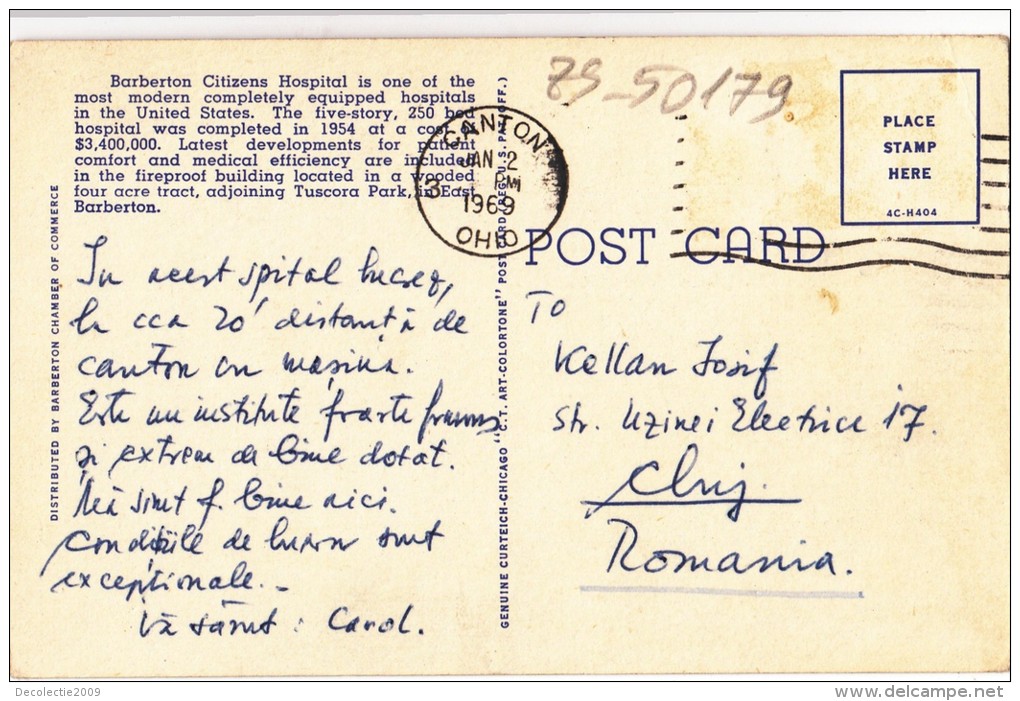 Barberton Citizens Hospital is one of the
most modern completely equipped hospitals
in the United States. The five-story, 250 bed
hospital was completed in 1954 at a cost of
$3,400,000. Latest developments for patient
comfort and medical efficiency are included
in the fireproof building located in a wooded
four acre tract, adjoining Tuscora Park, in East
Barberton.
DISTRIBUTED BY BARBERTON CHAMBER OF COMMERCE
In acest spital lucrez,
la cca 20' distanță de
canton cu mașina.
Este un institute foarte frumos
și extrem de bine dotat.
Mă simt f. bine aici.
condițiile de lucru sunt
excepționale. -
Vă sărut : Carol.
GENUINE CURTEICH-CHICAGO "C.T. ART-COLORTONE" POST CARD (REG. U.S. PAT. OFF.)
ZS-50179
CANTON
JAN 2
3 PM
1969
OHIO
PLACE
STAMP
HERE
4C-H404
POST CARD
TO
Kellan Iosif
str. Uzinei Electrice 17.
Cluj.
Romania.
Decolectie2009
http://www.delcampe.net